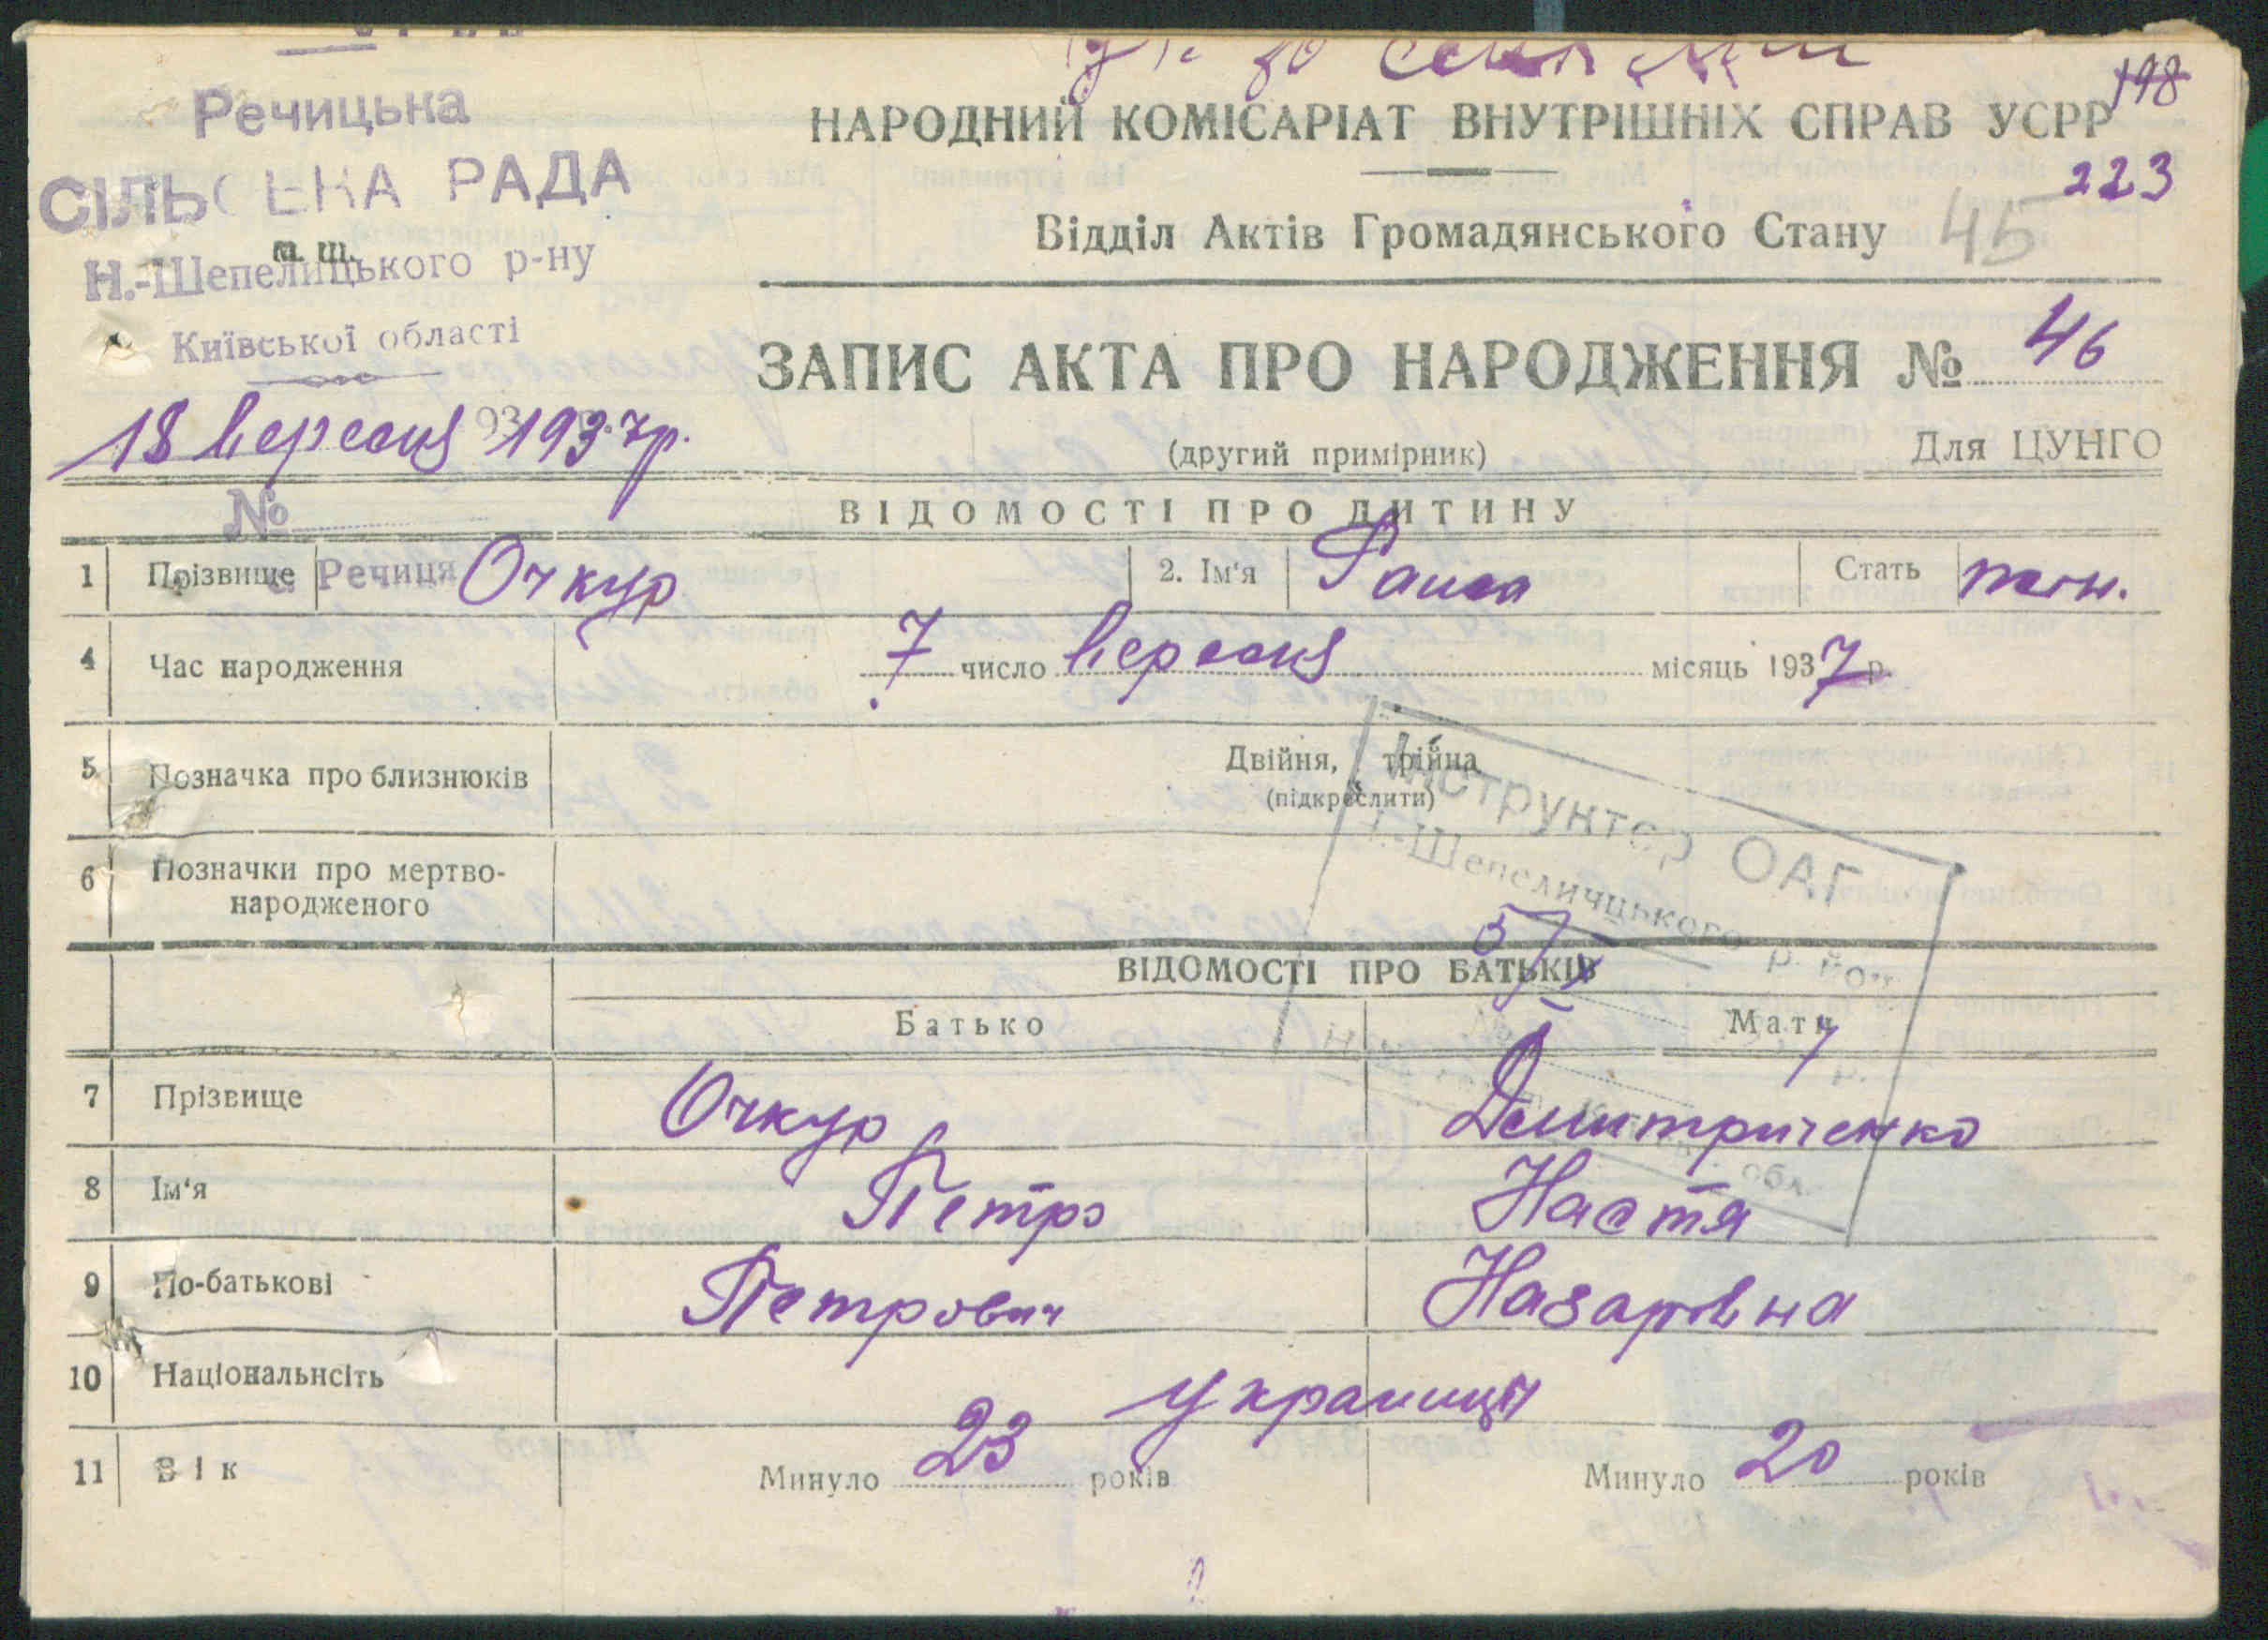 Речицька
СІЛЬСЬКА РАДА
м. ш.
Н.-Шепелицького р-ну
Київської області
18 вересня 1937р.
№
с. Речиця
НАРОДНИЙ КОМІСАРІАТ ВНУТРІШНІХ СПРАВ УСРР
198
223
Відділ Актів Громадянського Стану
45
ЗАПИС АКТА ПРО НАРОДЖЕННЯ № 46
(другий примірник) Для ЦУНГО
ВІДОМОСТІ ПРО ДИТИНУ
1 Прізвище Очкур 2. Ім'я Раиса Стать жін.
4 Час народження 7 число вересня місяць 1937 р.
5 Позначка про близнюків Двійня, трійна
(підкреслити)
6 Позначки про мертво-
народженого
Інструктор ОАГ
Н.-Шепеличцького р. йон
обл.
ВІДОМОСТІ ПРО БАТЬКІВ
Батько Мати
7 Прізвище Очкур Демитриченко
8 Ім'я Петро Настя
9 По-батькові Петрович Назаровна
10 Національнсіть украинці
11 Вік Минуло 23 років Минуло 20 років